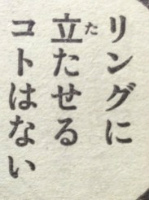 リングに
立たせる
コトはない